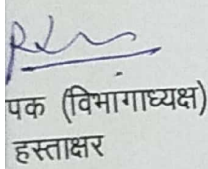 पक (विभागाध्यक्ष)
हस्ताक्षर